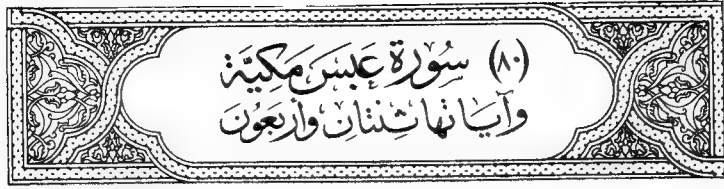 (٨٠) سُورَة عَبَسَ مَكيَّة
وَآيَاتهَا ثِنتَانِ وَأَربَعُونَ